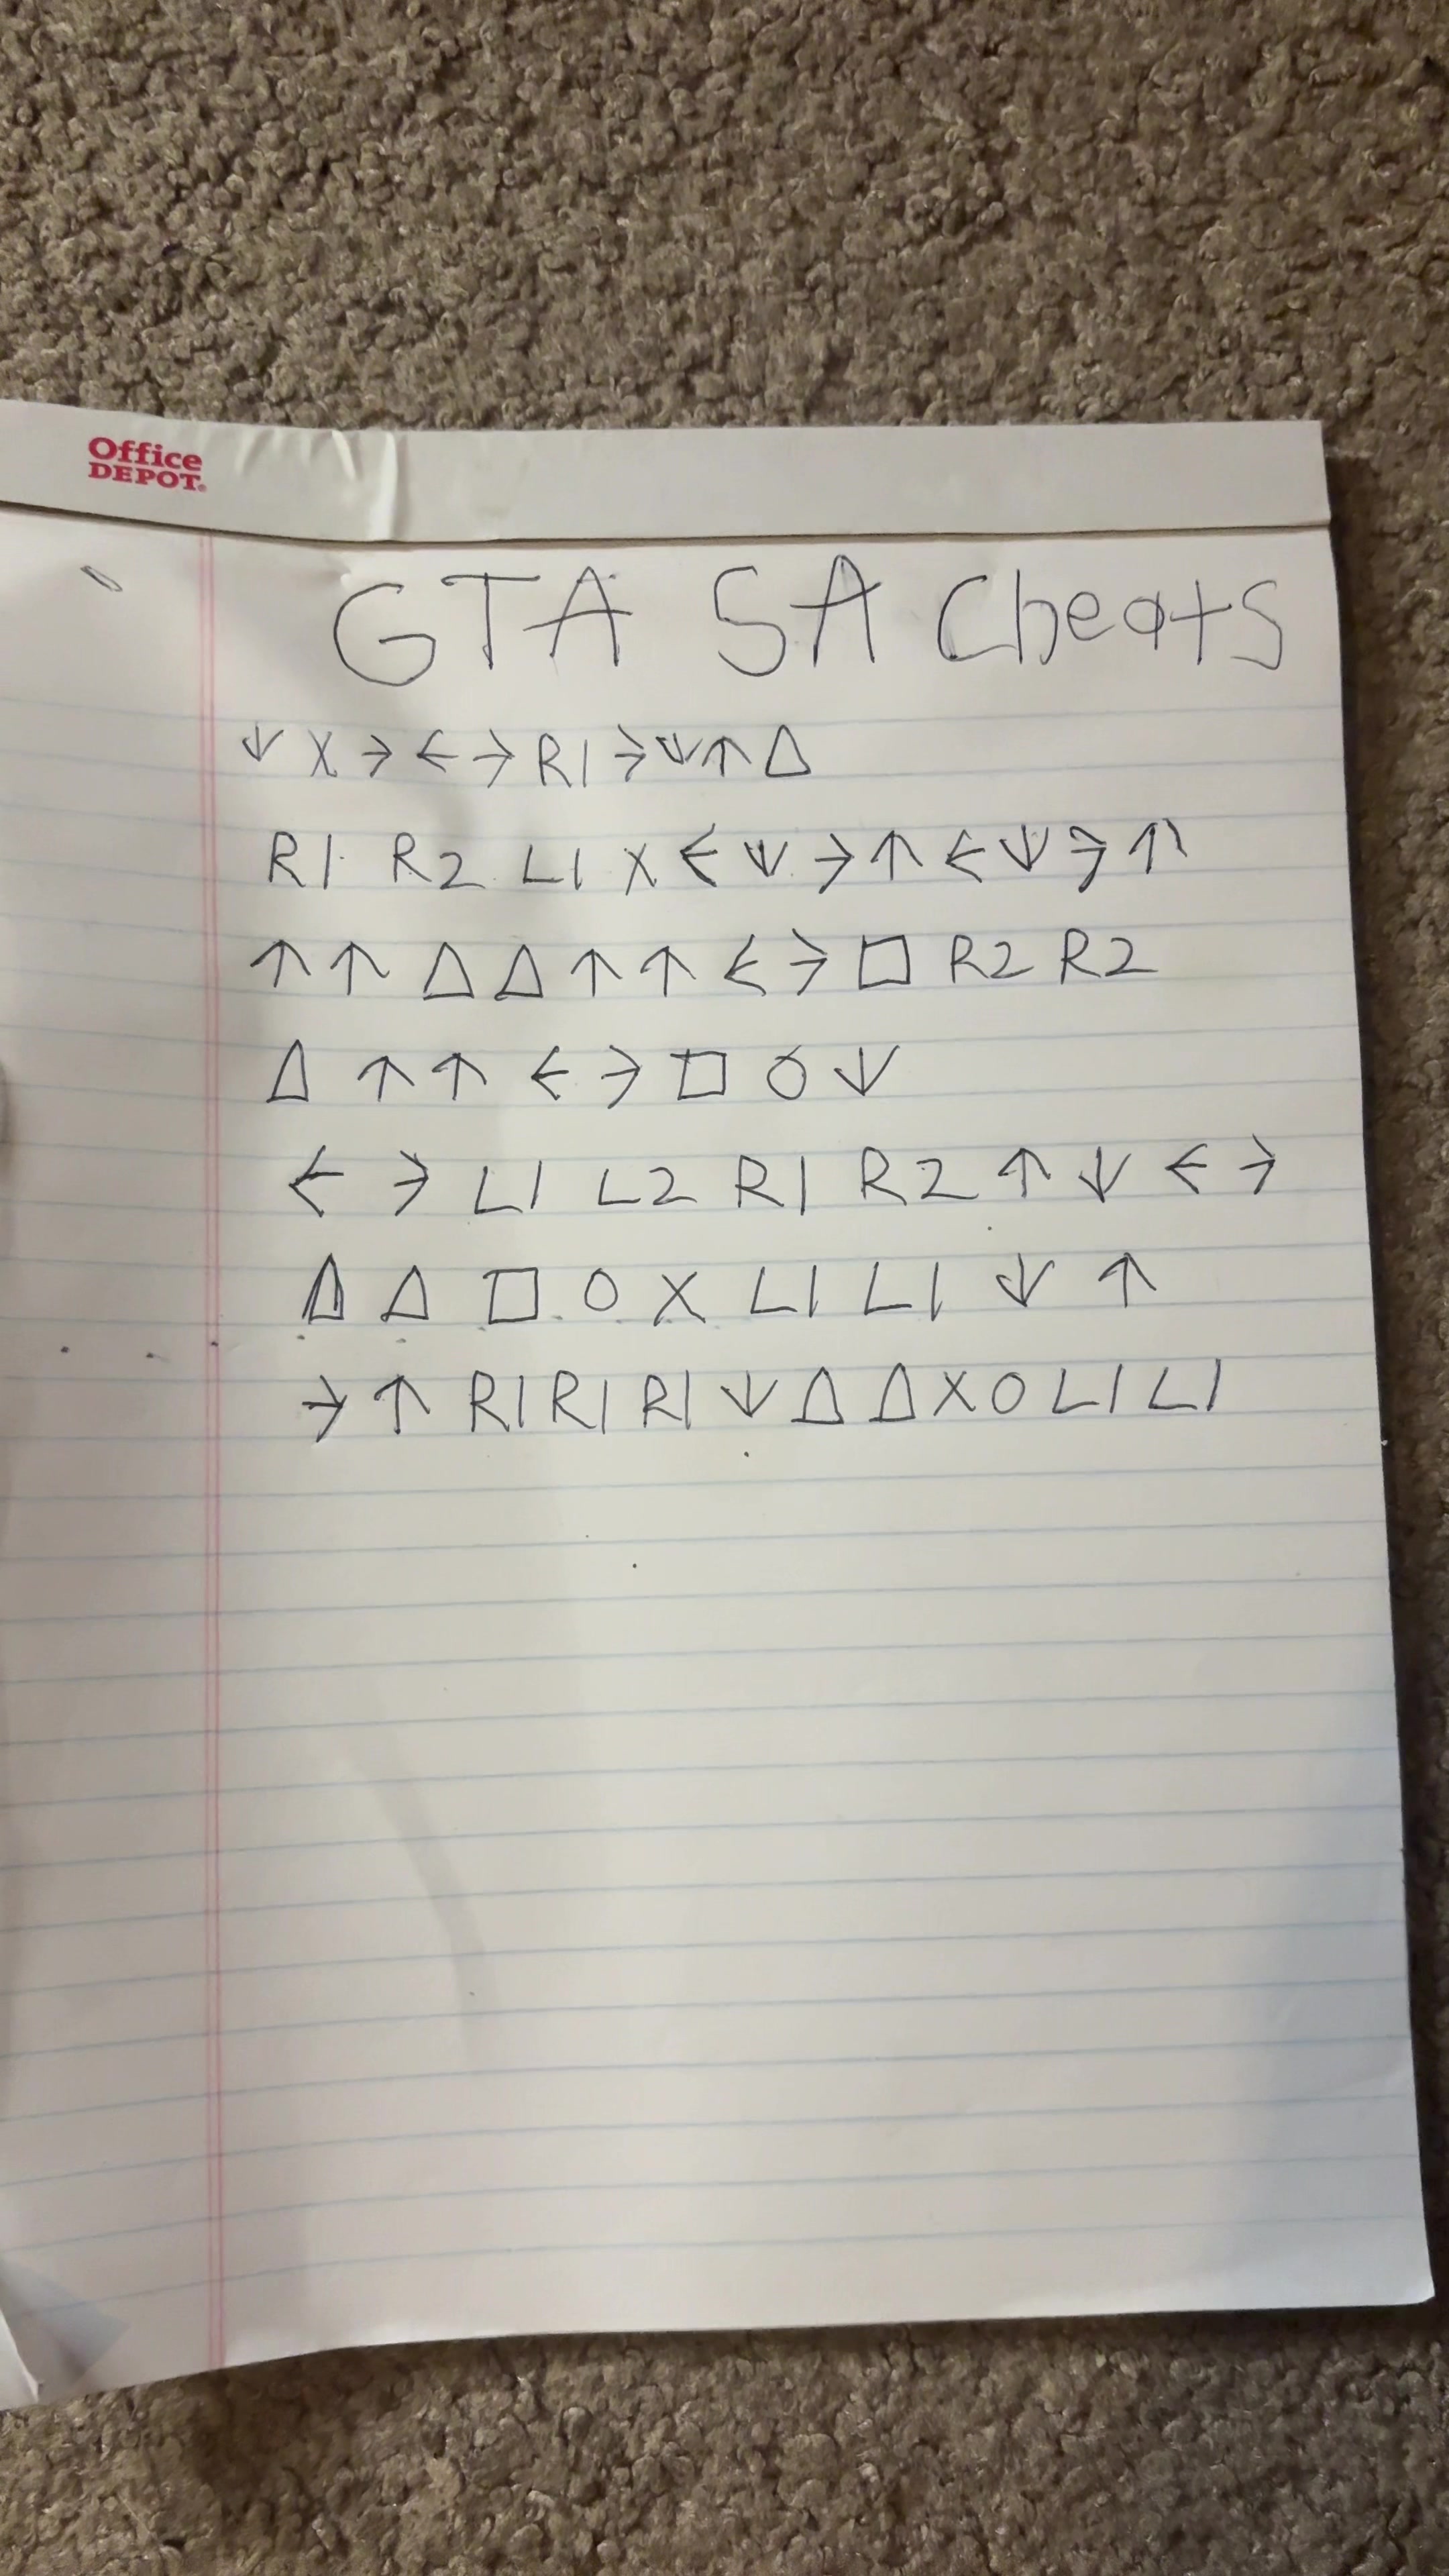 Office
DEPOT.
GTA SA Cheats
↓ X → ← → R1 → ↓ ↑ △
R1 R2 L1 X ← ↓ → ↑ ← ↓ → ↑
↑ ↑ △ △ ↑ ↑ ← → □ R2 R2
△ ↑ ↑ ← → □ O ↓
← → L1 L2 R1 R2 ↑ ↓ ← →
△ △ □ O X L1 L1 ↓ ↑
→ ↑ R1 R1 R1 ↓ △ △ X O L1 L1